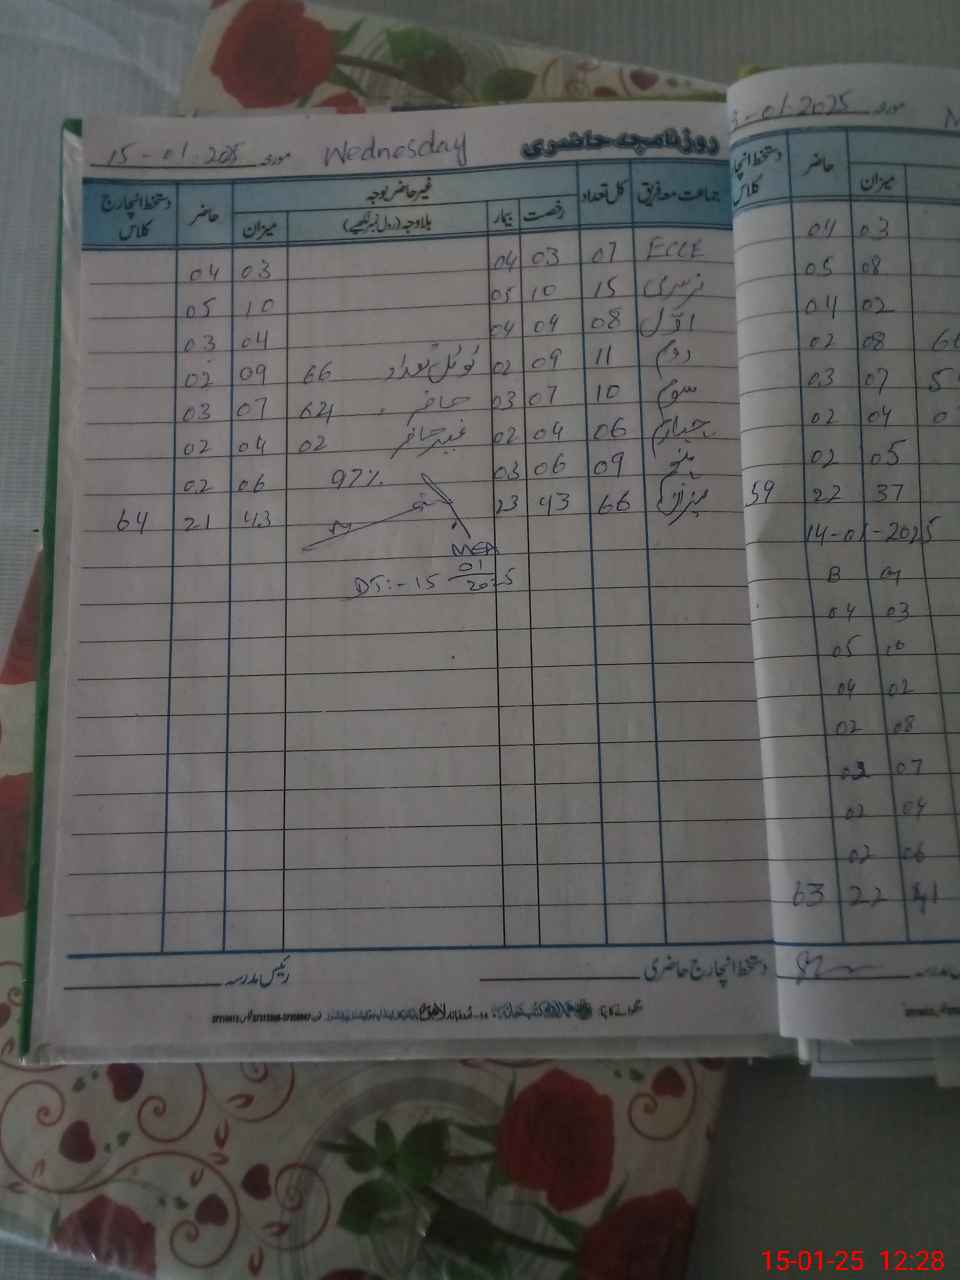 روزنامچہ حاضری Wednesday مورخہ 15-01-2025
جماعت معہ فریق کل تعداد غیر حاضر بوجہ حاضر دستخط انچارج کلاس
رخصت بیمار بلاوجہ (رول نمبر لکھیے) میزان
ECCE 07 03 04 03 04
نرسری 15 10 05 10 05
اوّل 08 04 04 04 03
دوم 11 09 02 ٹوٹل تعداد 66 09 02
سوم 10 07 03 حاضر 64 07 03
چہارم 06 04 02 غیر حاضر 02 04 02
پنجم 09 06 03 97% 06 02
میزان 66 43 23 43 21 64
MEA
DT:-15 01 2025
دستخط انچارج حاضری رئیس مدرسہ
-01-2025 مورخہ
میزان حاضر دستخط انچارج کلاس
03 04
08 05
02 04
08 02
07 03
04 02
05 02
37 22 59
14-01-2025
B G
04 03
05 10
04 02
02 08
03 07
02 04
02 06
63 22 41
15-01-25 12:28